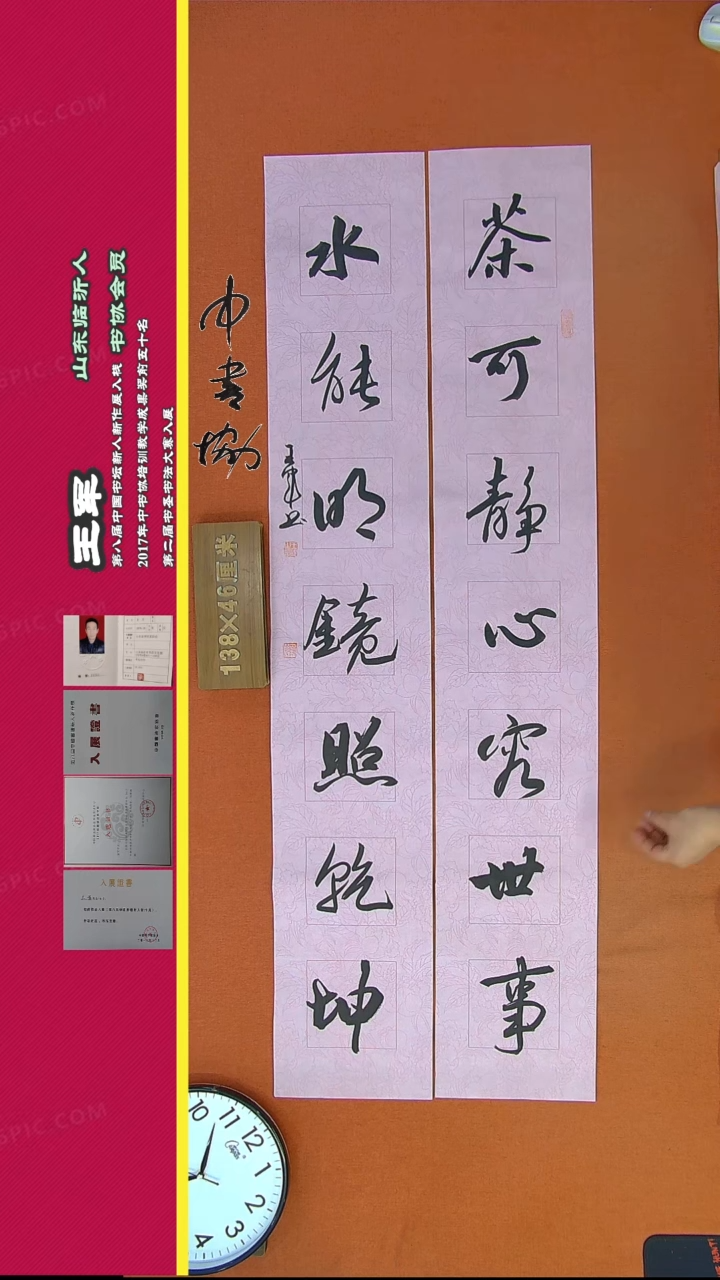 茶可静心容世事
水能明鏡照乾坤
王军书
中书协
138×46厘米
山东临沂人
书协会员
王军
第八届中国书坛新人新作展入展
2017年中书协培训教学成果奖前五十名
第二届书圣书法大赛入展
入展證書
10 11 12 1 2 3 4